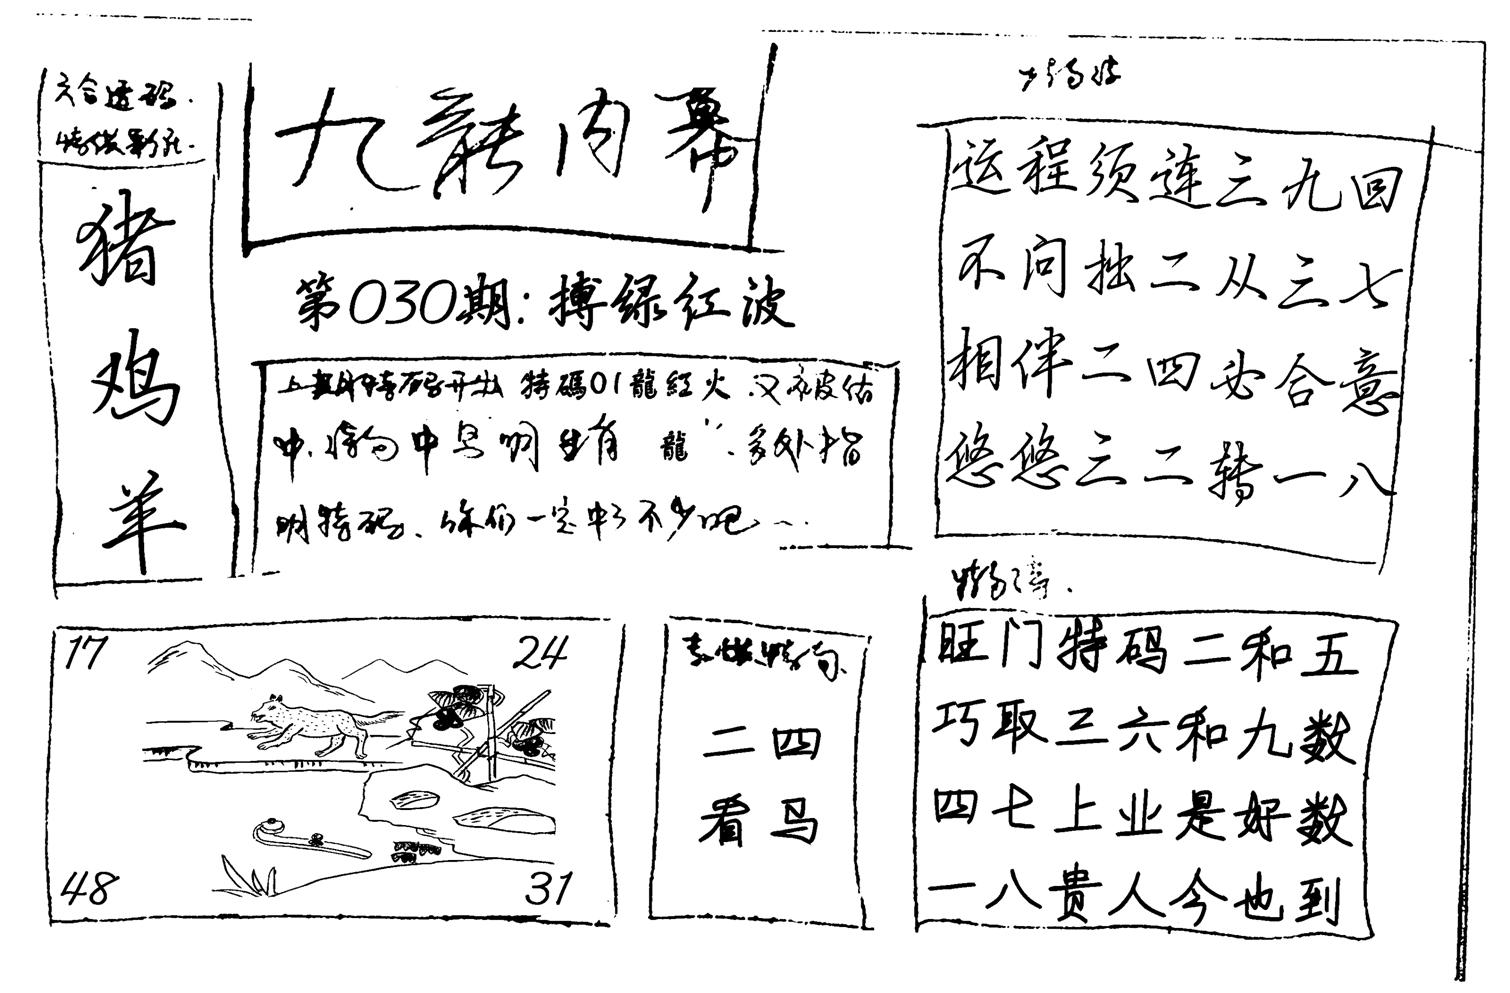 六合透码.
特供彩孔.
猪
鸡
羊
九龍内幕
第030期:搏绿红波
上期特码开出 特碼01龍红火.又被估
中.特句中早明生肖 龍".多处指
明特码、你们一定中了不少吧...
运程须连三九回
不问拙二从三七
相伴二四必合意
悠悠三二转一八
17
24
48
31
二四
看马
旺门特码二和五
巧取三六和九数
四七上业是好数
一八贵人今也到